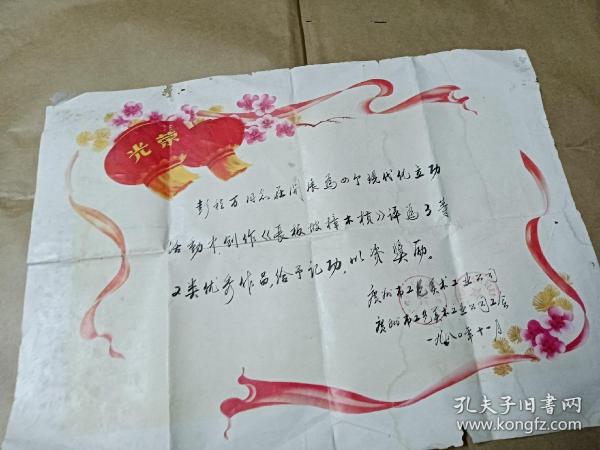 光荣
彭 万同志在开展为四个现代化立功
活动中,创作《长板坡樟木 》评为 等
2类优秀作品,给予记功,以资奖励。
广州市工艺美术工业公司
广州市工艺美术工业公司工会
一九八〇年十一月
孔夫子旧书网
www.kongfz.com